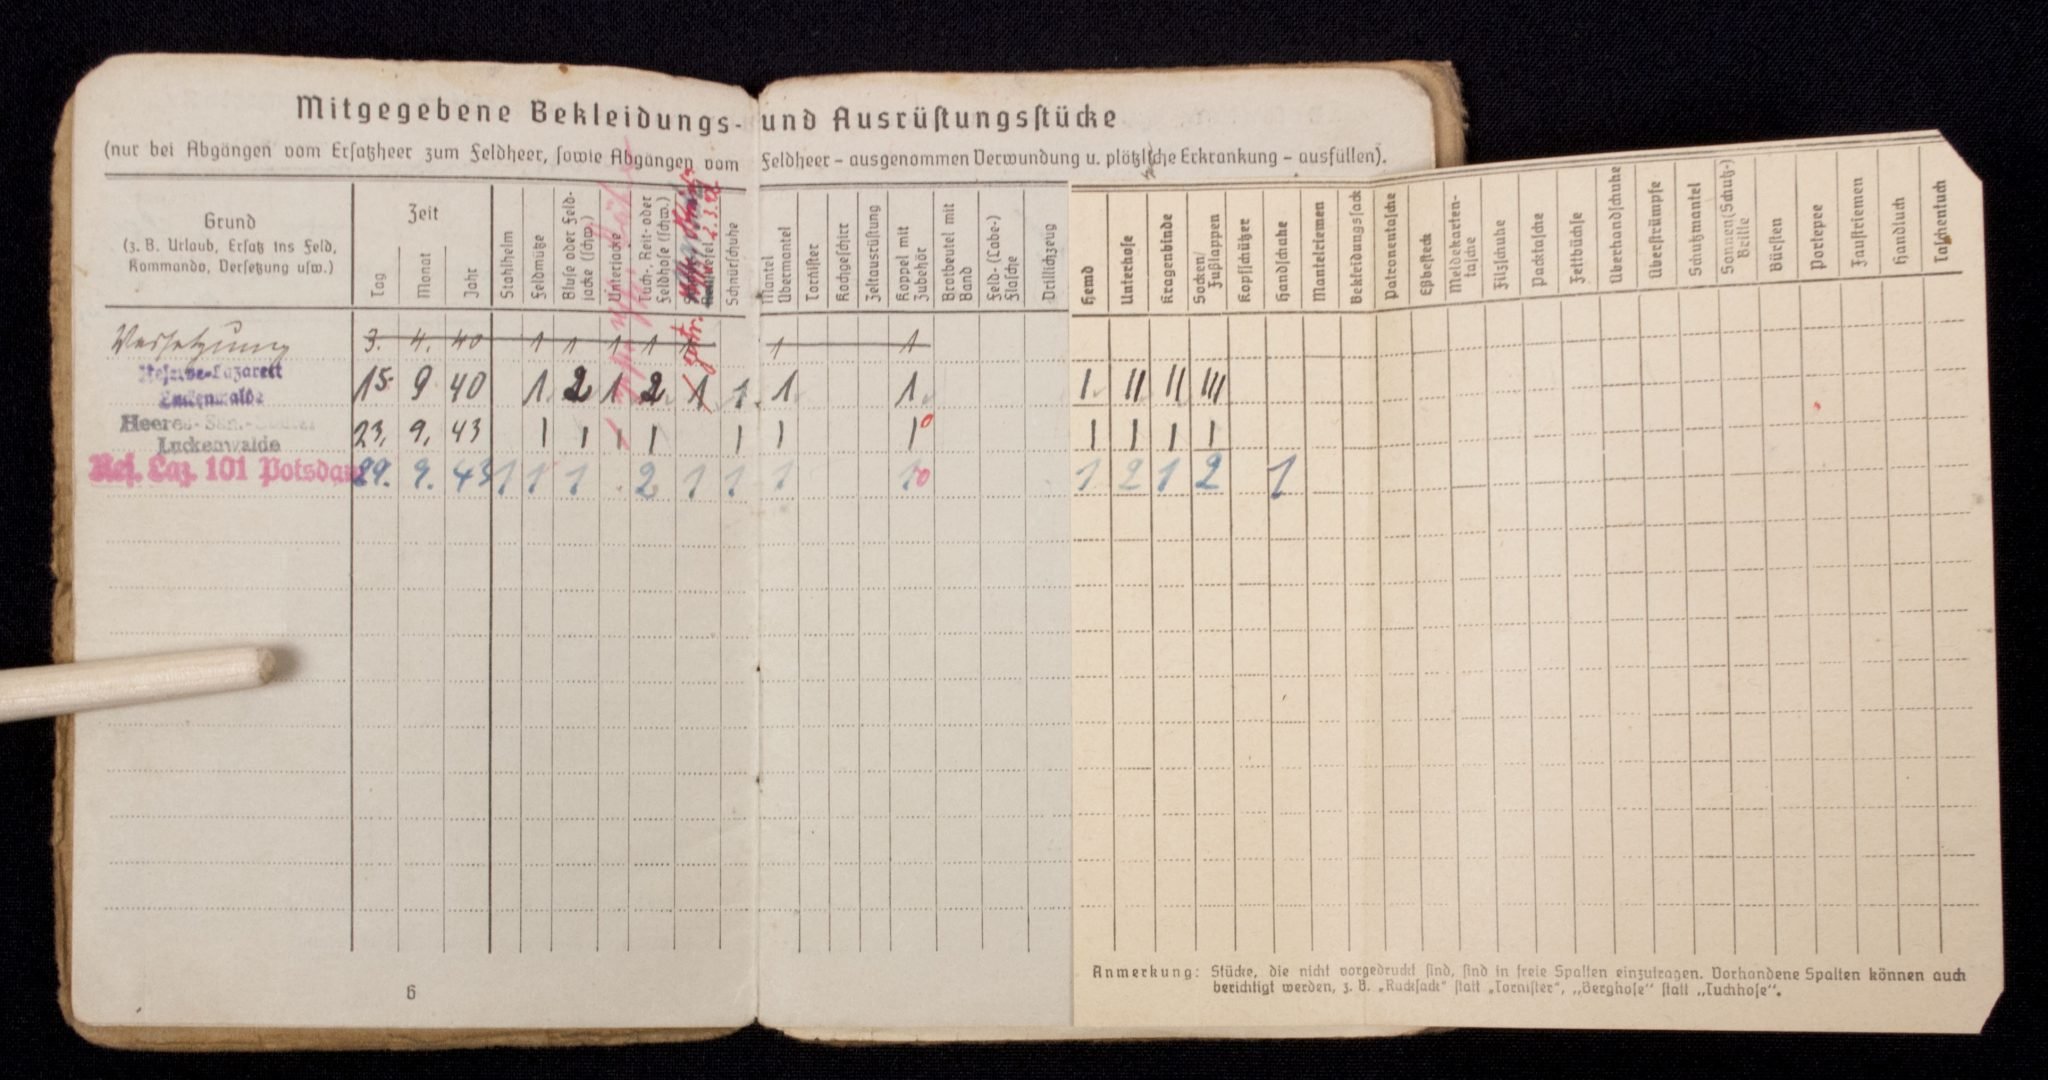 Mitgegebene Bekleidungs- und Ausrüstungsstücke
(nur bei Abgängen vom Ersatzheer zum Feldheer, sowie Abgängen vom Feldheer – ausgenommen Verwundung u. plötzliche Erkrankung – ausfüllen).
Grund
(z. B. Urlaub, Ersatz ins Feld,
Kommando, Versetzung usw.)
Zeit
Tag
Monat
Jahr
Stahlhelm
Feldmütze
Bluse oder Feld-
jacke (schw.)
Unterjacke
Tuch-, Reit- oder
Feldhose (schw.)
Schnürschuhe
Mantel
Übermantel
Tornister
Kochgeschirr
Zeltausrüstung
Koppel mit
Zubehör
Brotbeutel mit
Band
Feld- (Labe-)
Flasche
Drillichzeug
Hemd
Unterhose
Kragenbinde
Socken/
Fußlappen
Kopfschützer
Handschuhe
Mantelriemen
Bekleidungssack
Patronentasche
Eßbesteck
Meldekarten-
tasche
Filzschuhe
Packtasche
Fettbüchse
Überhandschuhe
Überstrümpfe
Schutzmantel
Sonnen(Schutz-)
Brille
Bürsten
Portepee
Faustriemen
Handtuch
Taschentuch
Versetzung 3. 4. 40 1 1 1 1 1 1 1
Reserve-Lazarett
Luckenwalde
15. 9 40 1 2 1 2 1 1 1 1 I II II III
Heeres-San.-
Luckenwalde
23. 9. 43 I I I I I I I 0 I I I I
Res. Laz. 101 Potsdam 29. 9. 43 1 1 1 2 1 1 1 1 0 1 2 1 2 1
Anmerkung: Stücke, die nicht vorgedruckt sind, sind in freie Spalten einzutragen. Vorhandene Spalten können auch
berichtigt werden, z. B. „Rucksack" statt „Tornister", „Berghose" statt „Tuchhose".
6